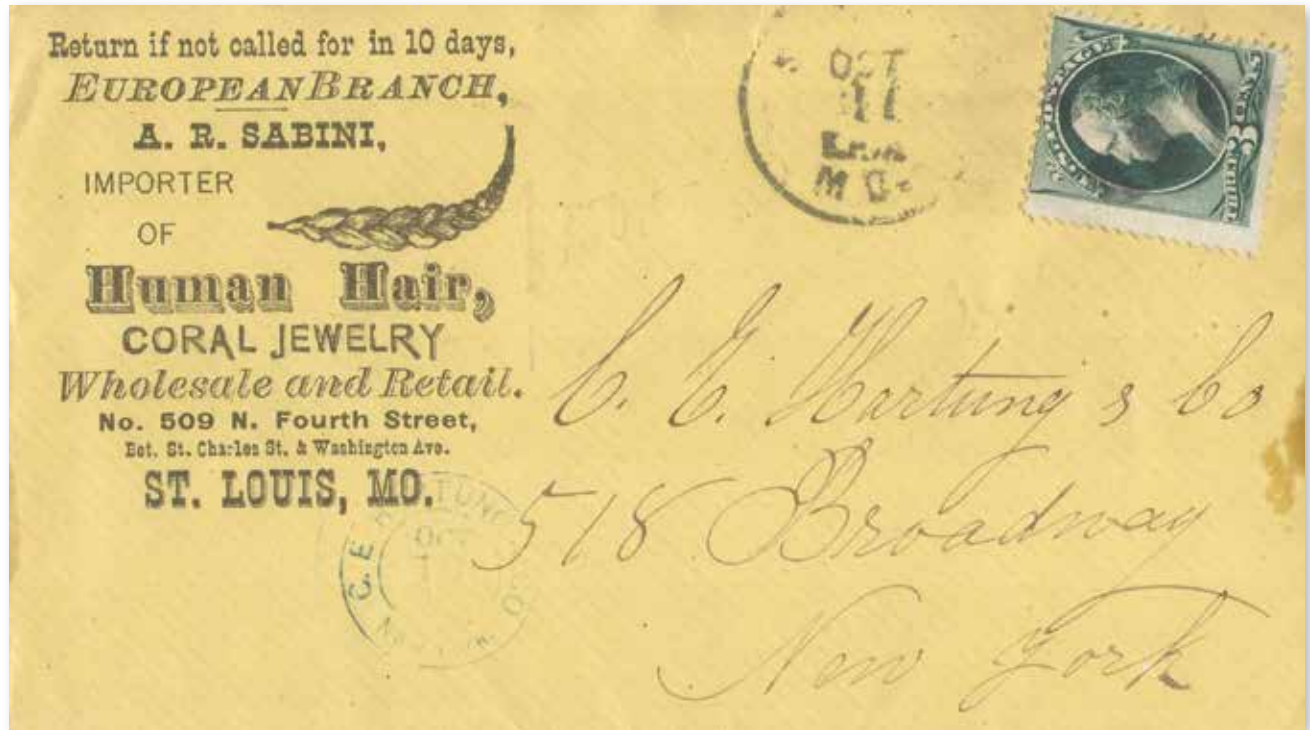 Return if not called for in 10 days,
EUROPEAN BRANCH,
A. R. SABINI,
IMPORTER
OF
Human Hair,
CORAL JEWELRY
Wholesale and Retail.
No. 509 N. Fourth Street,
Bet. St. Charles St. & Washington Ave.
ST. LOUIS, MO.
OCT
11
MO.
U.S. POSTAGE
THREE 3 CENTS
C. E. Hartung & Co
518 Broadway
New York
C. E. HARTUNG & CO
OCT
NEW YORK